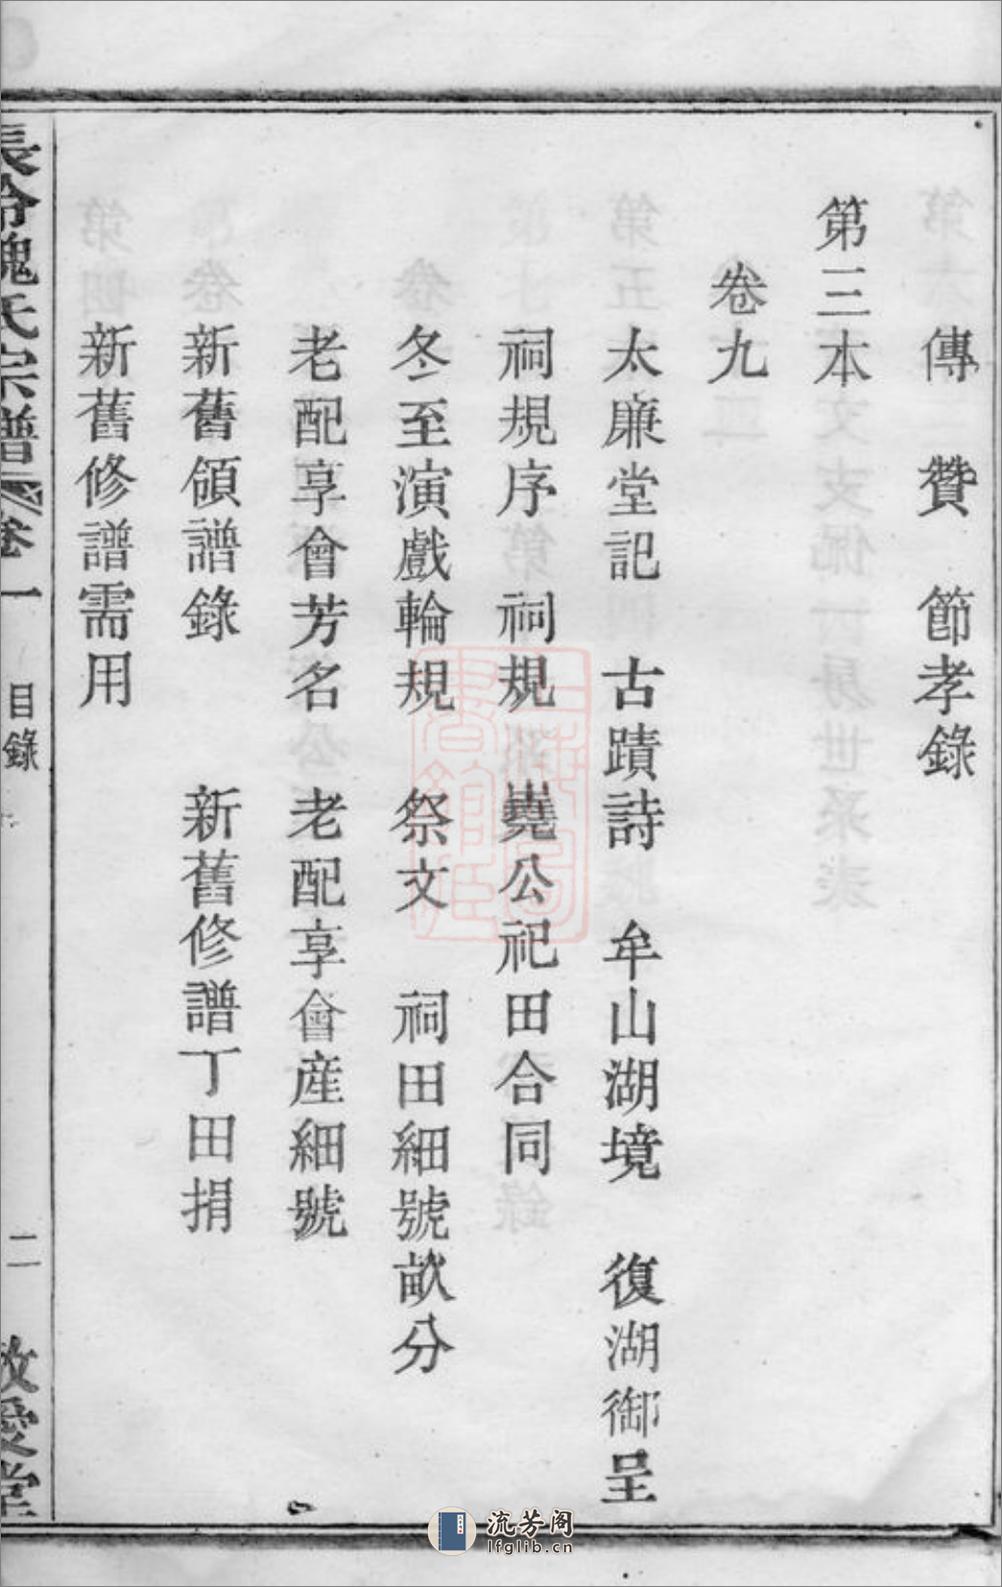 傳 贊 節孝錄
第三本
卷九
太廉堂記 古蹟詩 牟山湖境 復湖御呈
祠規序 祠規 堯公祀田合同
冬至演戲輪規 祭文 祠田細號畝分
老配享會芳名 老配享會產細號
新舊領譜錄 新舊修譜丁田捐
新舊修譜需用
長冷魏氏宗譜 卷一 目錄 二 敬愛堂
流芳阁
lfglib.cn